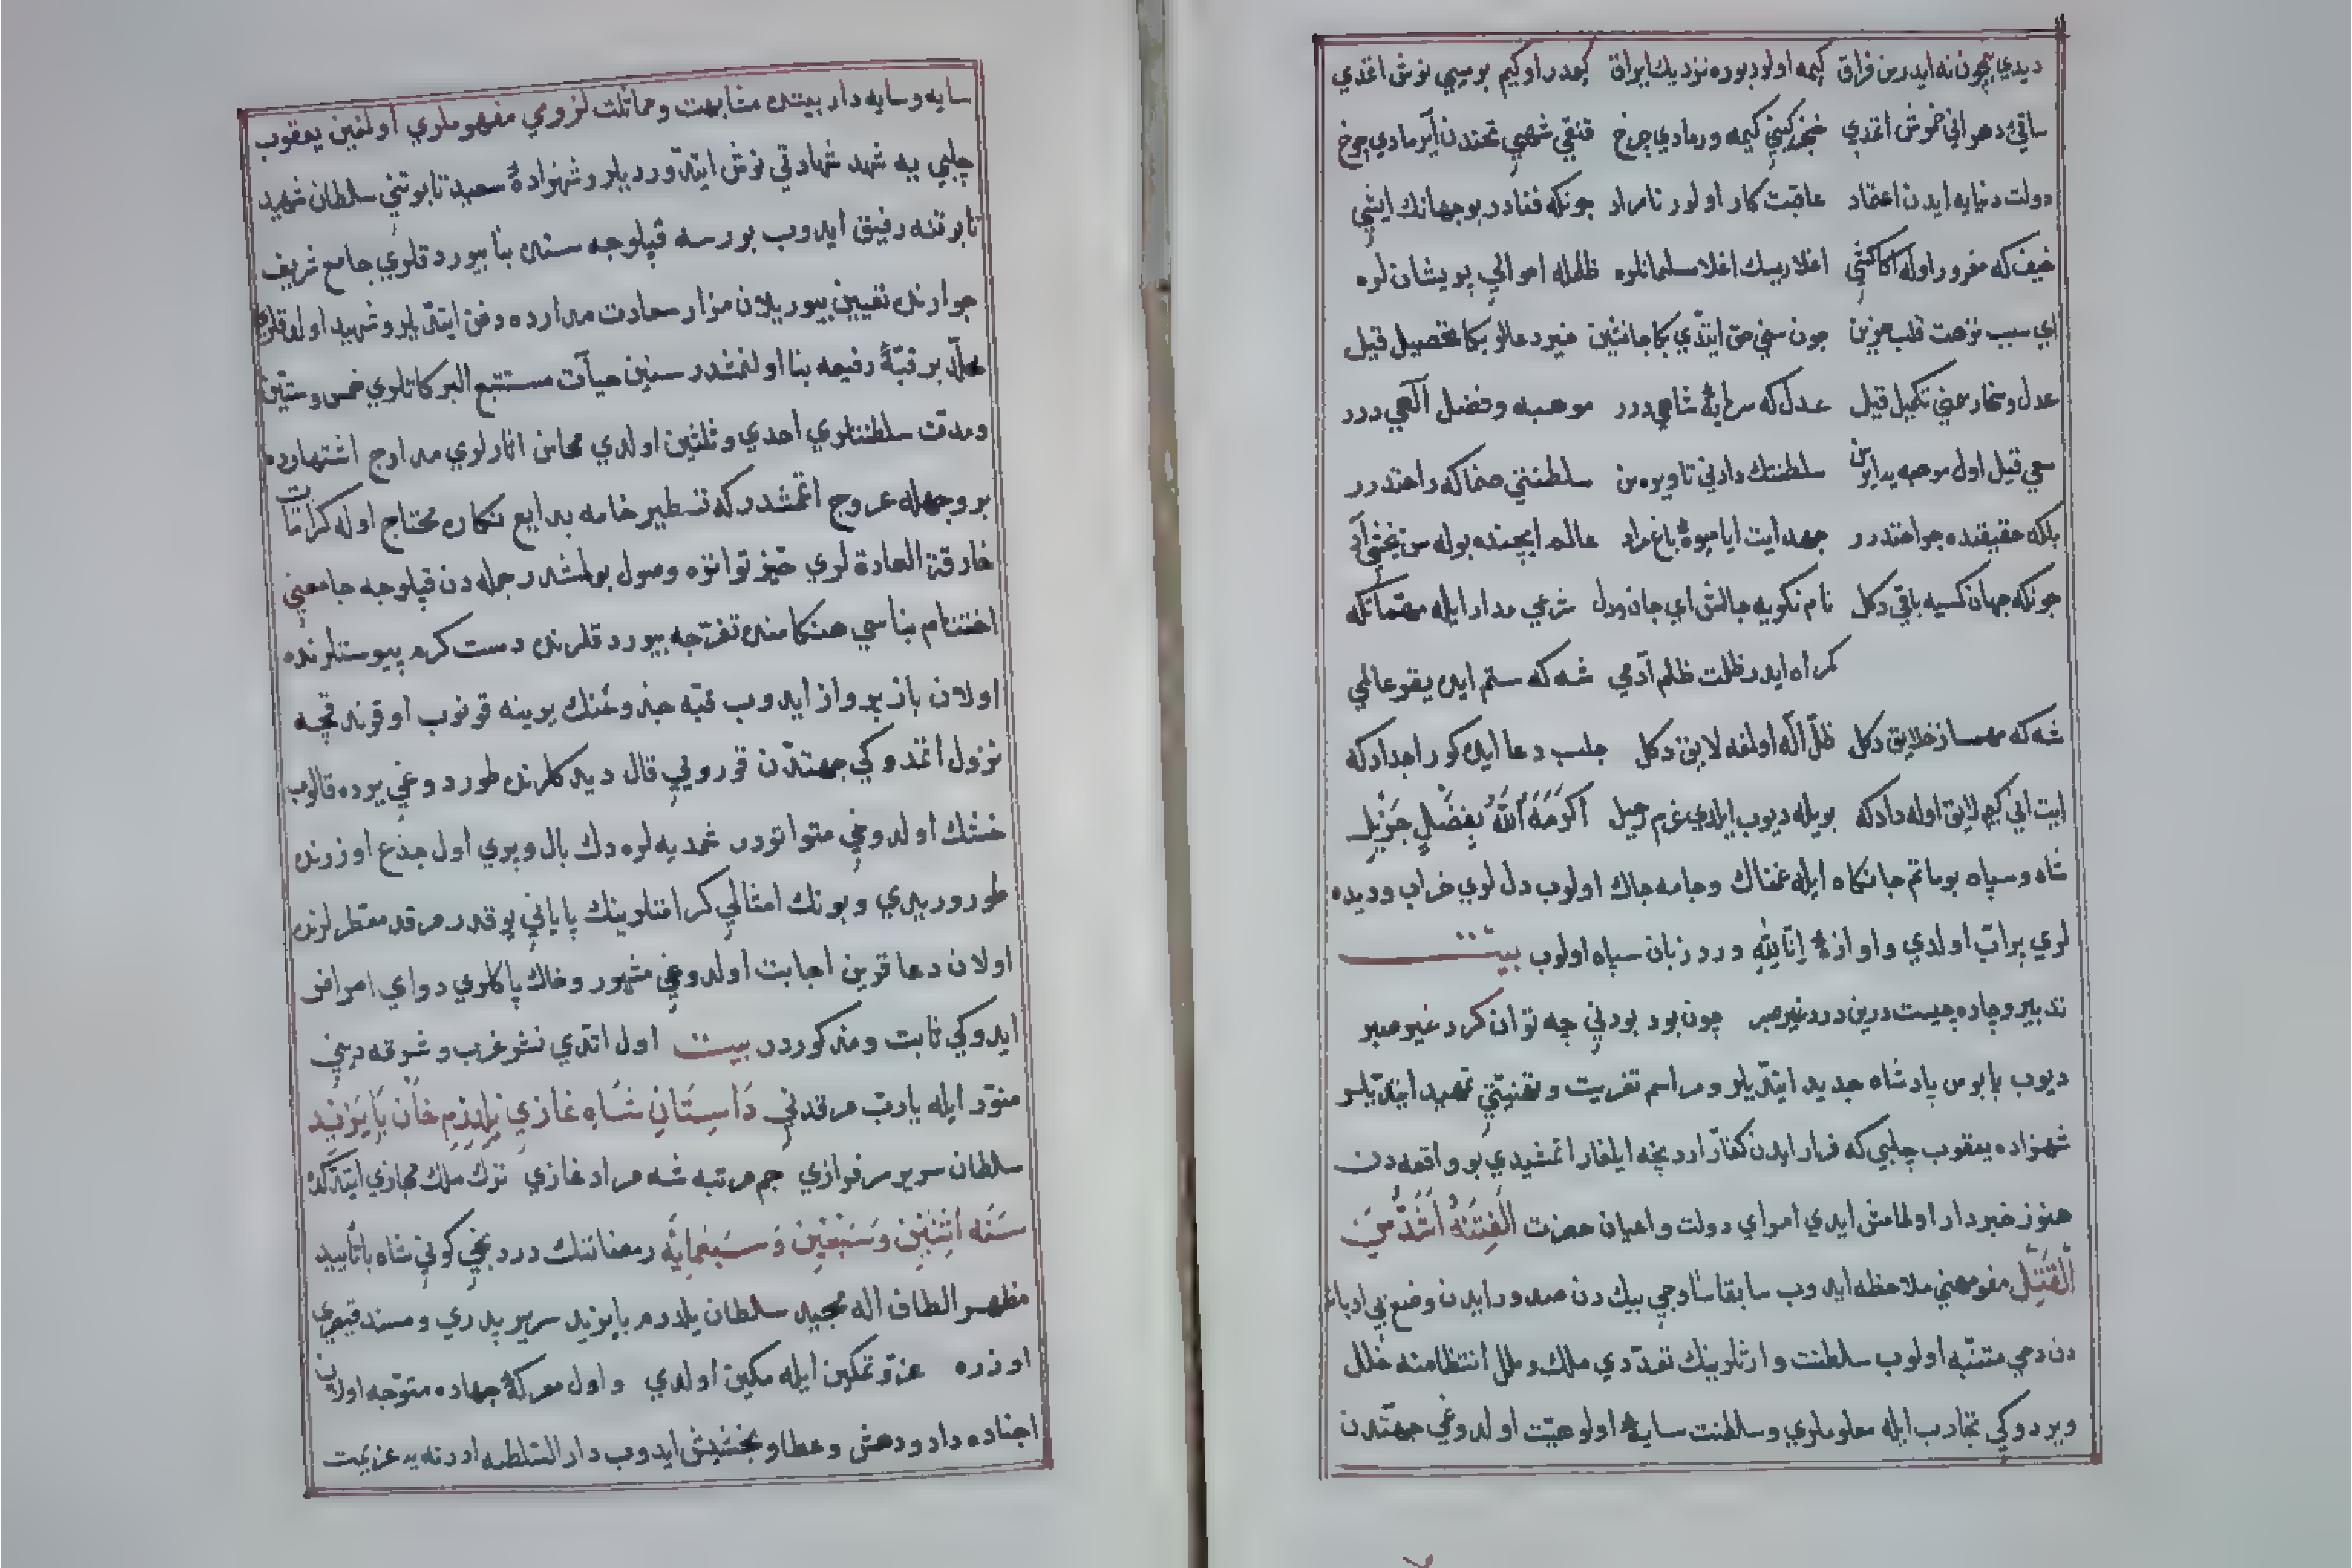 ديدي نيچون نه ايدر سن فراق كيمه اولور بوره نزديك ايراق كمدر اوكيم بو ميي نوش اتمدي
ساقئ دهر اني خموش اتمدي خنجر كينين كيمه ورمادي چرخ قنقي شهيي تختندن آيرمادي چرخ
دولت دنيايه ايدن اعتماد عاقبت كار اولور نامراد چونكه فنادر بو جهانك ايشي
حيف كه مغرور اوله اكا كشي اغلا مسلمانلره ظلمله احوالي پريشان لره
اي سبب نزهت قلب حزين چون سني حق ايتدي بكا جانشين خير دعالر بكا تحصيل قيل
عدل و سخا رسمني تكميل قيل عدل كه سرمايۀ شاهي درر موهبه و فضل آلهي درر
سعي قيل اول موهبه يه ايره سن سلطنتك دادني تا ويره سن سلطنتي صنما كه راحتدرر
بلكه حقيقتده جراحتدرر جهد ايت ايا ميوۀ باغ مراد عالم ايچنده بوله سن يخشي آد
چونكه جهان كسيه باقي دكل نام نكويه جالش اي جان ودل شرعي مدار ايله مهماتكه
كمراه ايدر ظلمت ظلم آدمي شه كه ستم ايده يقر عالمي
شه كه مهمساز خلايق دكل ظلّ اله اولمغه لايق دكل جلب دعا ايده كور اجدادكه
ايت اني كيم لايق اوله دادكه بويله ديوب ايلدي عزم رحيل اَكْرَمَهُ اَللّٰهُ بِفَضْلٍ جَزِيلٍ
شاه وسپاه بو ماتم جانكاه ايله غمناك وجامه چاك اولوب دل لري خراب وديده
لري پرآب اولدي و اوازۀ اِنّا لِلّٰهِ ورد زبان سپاه اولوب بيت
تدبير وچاره چيست درين درد غير صبر چون بود بودني چه توان كرد غير صبر
ديوب پابوس پادشاه جديد ايتديلر و مراسم تعزيت و تهنيتي تمهيد ايتديلر
شهزاده يعقوب چلبي كه فرار ايدن كفّار اردنجه ايلغار اتمشيدي بو واقعه دن
هنوز خبردار اولمامش ايدي امراي دولت و اعيان حضرت اَلْفِتْنَةُ اَشَدُّ مِنَ
اَلْقَتْلِ مفهومني ملاحظه ايدوب سابقا ساوجي بيك دن صدور ايدن وضع بي ادبانه
دن دخي متنبّه اولوب سلطنت وارثلرينك تعدّدي ملك و ملل انتظامنه خلل
ويردوكي تجارب ايله معلوملري وسلطنت سايۀ الوهيّت اولدوغي جهتدن
سايه وسايه دار بيننده مشابهت ومماثلت لزومي مفهوملري اولمغين يعقوب
چلبي يه شهد شهادتي نوش ايتدورديلر و شهزادۀ سعيد تابوتني سلطان شهيد
تابوتنه رفيق ايدوب بورسه قپلوجه سنده بنا بيوردقلري جامع شريف
جوارنده تعيين بيوريلان مزار سعادت مدارده دفن ايتديلر و شهيد اولدوقلري
محلده بر قبّۀ رفيعه بنا اولنمشدر سنين حيات مستتبع البركاتلري خمس وستين
ومدّت سلطنتلري احدي وثلثين اولدي محاسن اثارلري مدارج اشتهارده
بر وجهله عروج اتمشدر كه تسطير خامه بدايع نكاره محتاج اوله كرامات
خارقة العادة لري حيّز تواتره وصول بولمشدر جمله دن قپلوجه جامعني
اختتام بناسي هنكامنده تفرّجه بيوردقلرنده دست كرم پيوستلرنده
اولان باز پرواز ايدوب قبّه جذوعنك برينه قونوب اوقونده قجه
نزول اتمدوكي جهتدن قوروبي قال ديدكلرنده طوردوغي يرده قالوب
خشك اولدوغي متواتردر شمديه لره دك بال وپري اول جذع اوزرنده
طورورييدي وبونك امثالي كرامتلرينك پاياني يوقدر مرقد معطّرلرنده
اولان دعا قرين اجابت اولدوغي مشهور وخاك پاكلري دواي امراض
ايدوكي ثابت ومذكوردر بيت اول اتدي نشر غرب وشرقه ديني
منوّر ايله يارب مرقدني دَاسِتَانِ شَاهِ غَازِي يِلْدِرِمْ خَانْ بَايَزِيد
سلطان سرير سرفرازي جم مرتبه شه مراد غازي ترك ملك مجازي ايتدكده
سَنَه اثْنَيْنِ وَسَبْعِينَ وَسَبْعمِايَه رمضاننك دردنجي كوني شاه باتأييد
مظهر الطاف اله مجيد سلطان يلدرم بايزيد سرير پدري ومسند قيصري
اوزره عزّ و تمكين ايله مكين اولدي واول معركۀ جهاده متوجّه اولان
اجناده داد ودهش وعطا و بخشيش ايدوب دار السّلطنه ادرنه يه عزيمت